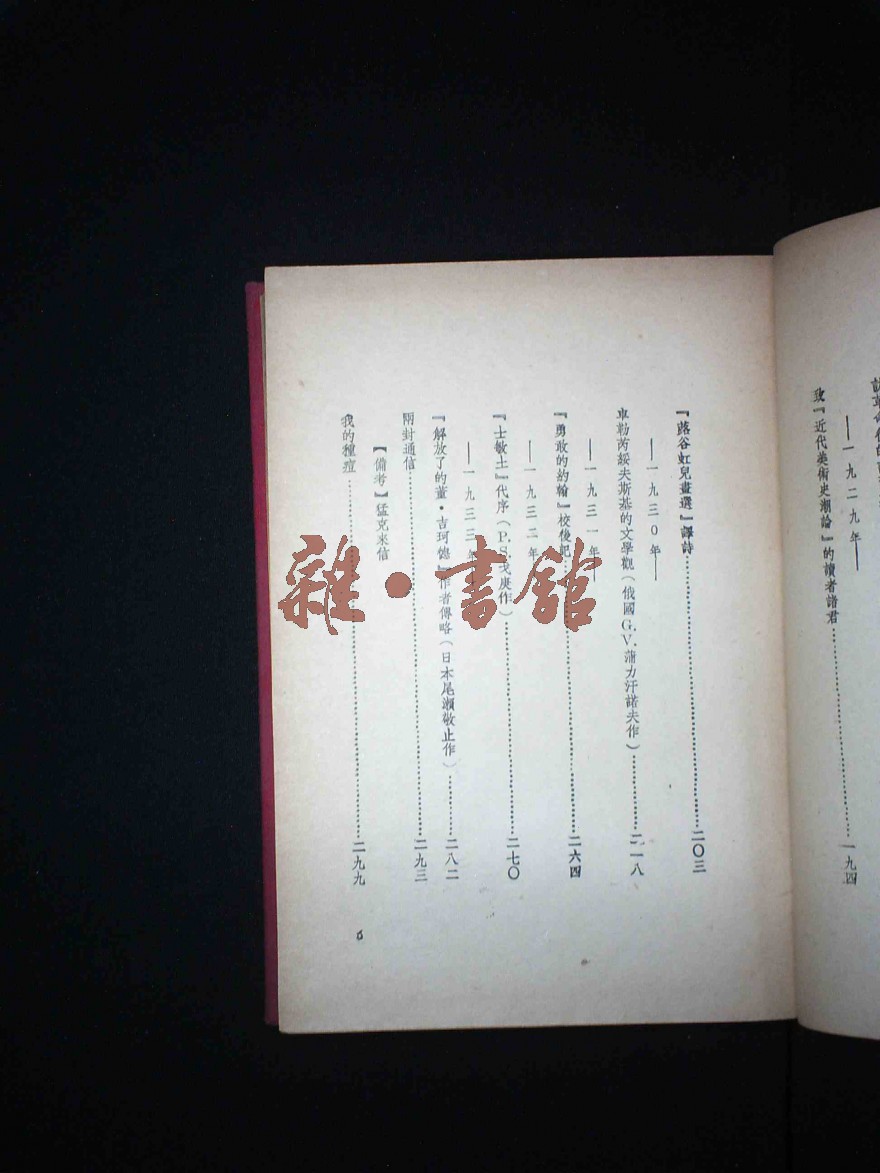 ——一九二九年——
致『近代美術史潮論』的讀者諸君……一九四
『蕗谷虹兒畫選』譯詩……二〇三
——一九三〇年——
車勒芮綏夫斯基的文學觀（俄國G.V.蒲力汗諾夫作）……二一八
——一九三一年——
『勇敢的約翰』校後記……二六四
——一九三二年——
『士敏土』代序（P.S.戈庚作）……二七〇
——一九三三年——
『解放了的董·吉珂德』作者傳略（日本尾瀨敬止作）……二八二
兩封通信……二九三
【備考】猛克來信
我的種痘……二九九
6
雜·書館